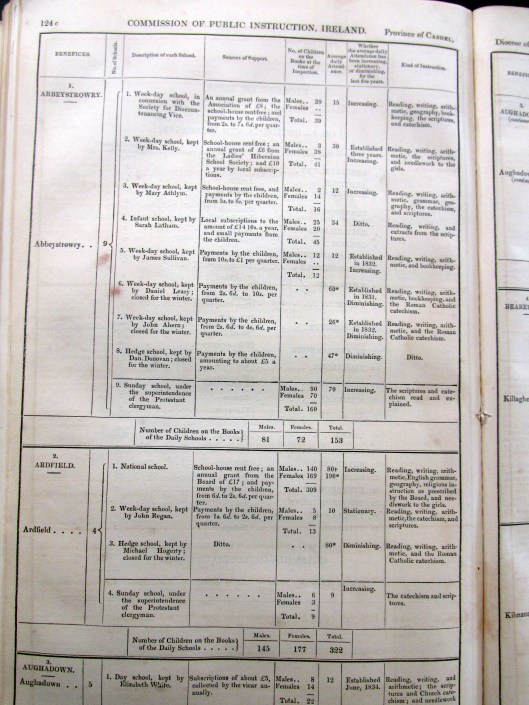 124 c
COMMISSION OF PUBLIC INSTRUCTION, IRELAND.
Province of CASHEL,
BENEFICES.
No. of Schools.
Description of each School.
Sources of Support.
No. of Children
on the
Books at the
time of
Inspection.
Average
daily
Attend-
ance.
Whether
the average daily
Attendance has
been increasing,
stationary,
or diminishing,
for the
last five years.
Kind of Instruction.
1.
ABBEYSTROWRY.
Abbeystrowry.
9
1. Week-day school, in
connexion with the
Society for Discoun-
tenancing Vice.
An annual grant from the
Association of £8; the
school-house rent free; and
payments by the children,
from 2s. to 7s. 6d. per quar-
ter.
Males.. 39
Females ..
Total. 39
15
Increasing.
Reading, writing, arith-
metic, geography, book-
keeping, the scriptures,
and catechism.
2. Week-day school, kept
by Mrs. Kelly.
School-house rent free; an
annual grant of £6 from
the Ladies' Hibernian
School Society; and £10
a year by local subscrip-
tions.
Males.. 3
Females 38
Total. 41
30
Established
three years.
Increasing.
Reading, writing, arith-
metic, the scriptures,
and needlework to the
girls.
3. Week-day school, kept
by Mary Athlyn.
School-house rent free, and
payments by the children,
from 1s. to 5s. per quarter.
Males.. 2
Females 14
Total. 16
12
Increasing.
Reading, writing, arith-
metic, grammar, geo-
graphy, the catechism,
and scriptures.
4. Infant school, kept by
Sarah Latham.
Local subscriptions to the
amount of £14 10s. a year,
and small payments from
the children.
Males.. 25
Females 20
Total. 45
34
Ditto.
Reading, writing, and
extracts from the scrip-
tures.
5. Week-day school, kept
by James Sullivan.
Payments by the children,
from 10s. to £1 per quarter.
Males.. 12
Females ..
Total. 12
12
Established
in 1832.
Increasing.
Reading, writing, arith-
metic, and bookkeeping.
6. Week-day school, kept
by Daniel Leary;
closed for the winter.
Payments by the children,
from 2s. 6d. to 10s. per
quarter.
. .
60*
Established
in 1831.
Diminishing.
Reading, writing, arith-
metic, bookkeeping, and
the Roman Catholic
catechism.
7. Week-day school, kept
by John Ahern;
closed for the winter.
Payments by the children,
from 2s. 6d. to 4s. 6d. per
quarter.
. .
26*
Established
in 1832.
Diminishing.
Reading, writing, arith-
metic, and the Roman
Catholic catechism.
8. Hedge school, kept by
Dan. Donovan; closed
for the winter.
Payments by the children,
amounting to about £5 a
year.
. .
47*
Diminishing.
Ditto.
9. Sunday school, under
the superintendence
of the Protestant
clergyman.
. . . . . .
Males.. 90
Females 70
Total. 160
70
Increasing.
The scriptures and cate-
chism read and ex-
plained.
Number of Children on the Books
of the Daily Schools . . . . .
Males.
81
Females.
72
Total.
153
2.
ARDFIELD.
Ardfield . . .
4
1. National school.
School-house rent free; an
annual grant from the
Board of £17; and pay-
ments by the children,
from 6d. to 2s. 6d. per quar-
ter.
Males.. 140
Females 169
Total. 309
80†
100*
Increasing.
Reading, writing, arith-
metic, English grammar,
geography, religious in-
struction as prescribed
by the Board, and nee-
dlework to the girls.
2. Week-day school, kept
by John Regan.
Payments by the children,
from 1s. 6d. to 2s. 6d. per
quarter.
Males.. 5
Females 8
Total. 13
10
Stationary.
Reading, writing, arith-
metic, the catechism, and
scriptures.
3. Hedge school, kept by
Michael Hogerty;
closed for the winter.
Ditto.
. .
80*
Diminishing.
Reading, writing, arith-
metic, and the Roman
Catholic catechism.
4. Sunday school, under
the superintendence
of the Protestant
clergyman.
. . . . . .
Males.. 6
Females 3
Total. 9
9
Increasing.
The catechism and scrip-
tures.
Number of Children on the Books
of the Daily Schools . . . . .
Males.
145
Females.
177
Total.
322
3.
AUGHADOWN.
Aughadown . .
5
1. Day school, kept by
Elizabeth White.
Subscriptions of about £5,
collected by the vicar an-
nually.
Males.. 8
Females 14
Total. 22
12
Established
June, 1834.
Reading, writing, and
arithmetic; the scrip-
tures and Church cate-
chism; and needlework
Diocese of
BENEFICES.
AUGHAD
Aughadow
BEAREH
Killagh
Kilmann